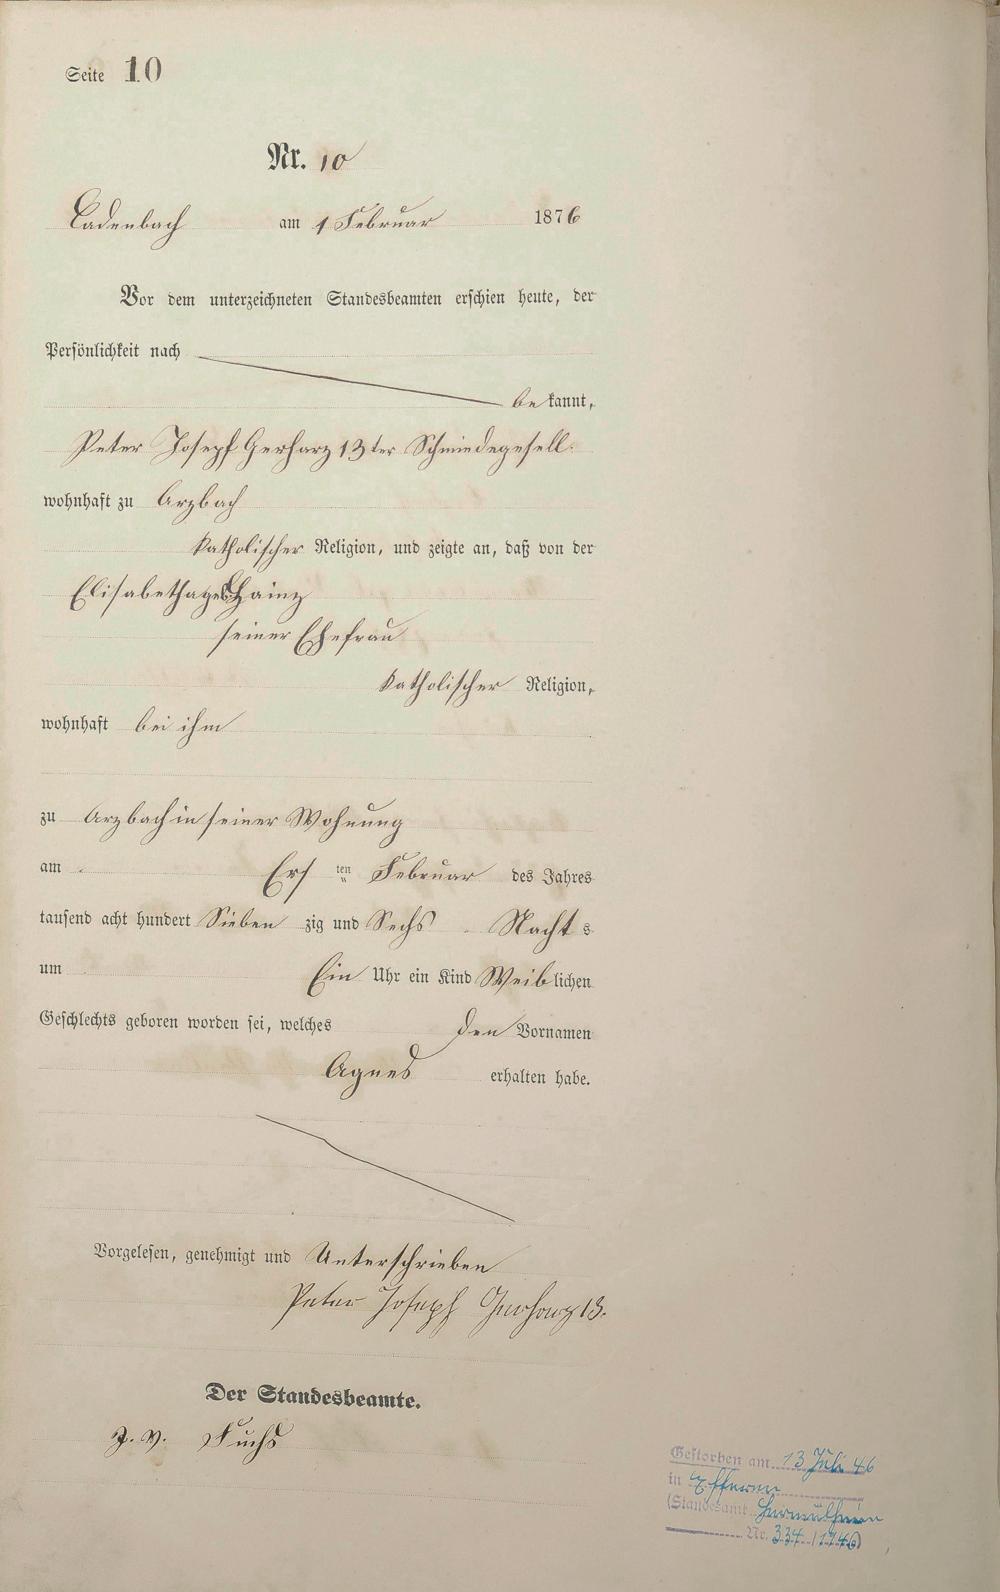 Seite 10
Nr. 10
Cadenbach am 1 Februar 1876
Vor dem unterzeichneten Standesbeamten erschien heute, der
Persönlichkeit nach
bekannt,
Peter Josepf Gerharz 13ter Schmiedegesell.
wohnhaft zu Arzbach
katholischer Religion, und zeigte an, daß von der
Elisabetha geb Hainz
seiner Ehefrau
katholischer Religion,
wohnhaft bei ihm
zu Arzbach in seiner Wohnung
am Ersten Februar des Jahres
tausend acht hundert Sieben zig und Sechs Nachts
um Ein Uhr ein Kind Weiblichen
Geschlechts geboren worden sei, welches den Vornamen
Agnes erhalten habe.
Vorgelesen, genehmigt und Unterschrieben
Peter Joseph Gerharz 13.
Der Standesbeamte.
J. V. Fuchs
Gestorben am 13 Juli 46
in Efferen
(Standesamt Hermülheim
Nr. 334 / 1946)